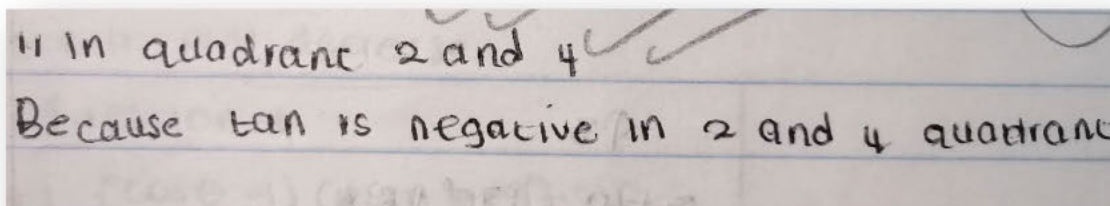 11 In quadranc 2 and 4
Because tan is negative in 2 and 4 quadranc